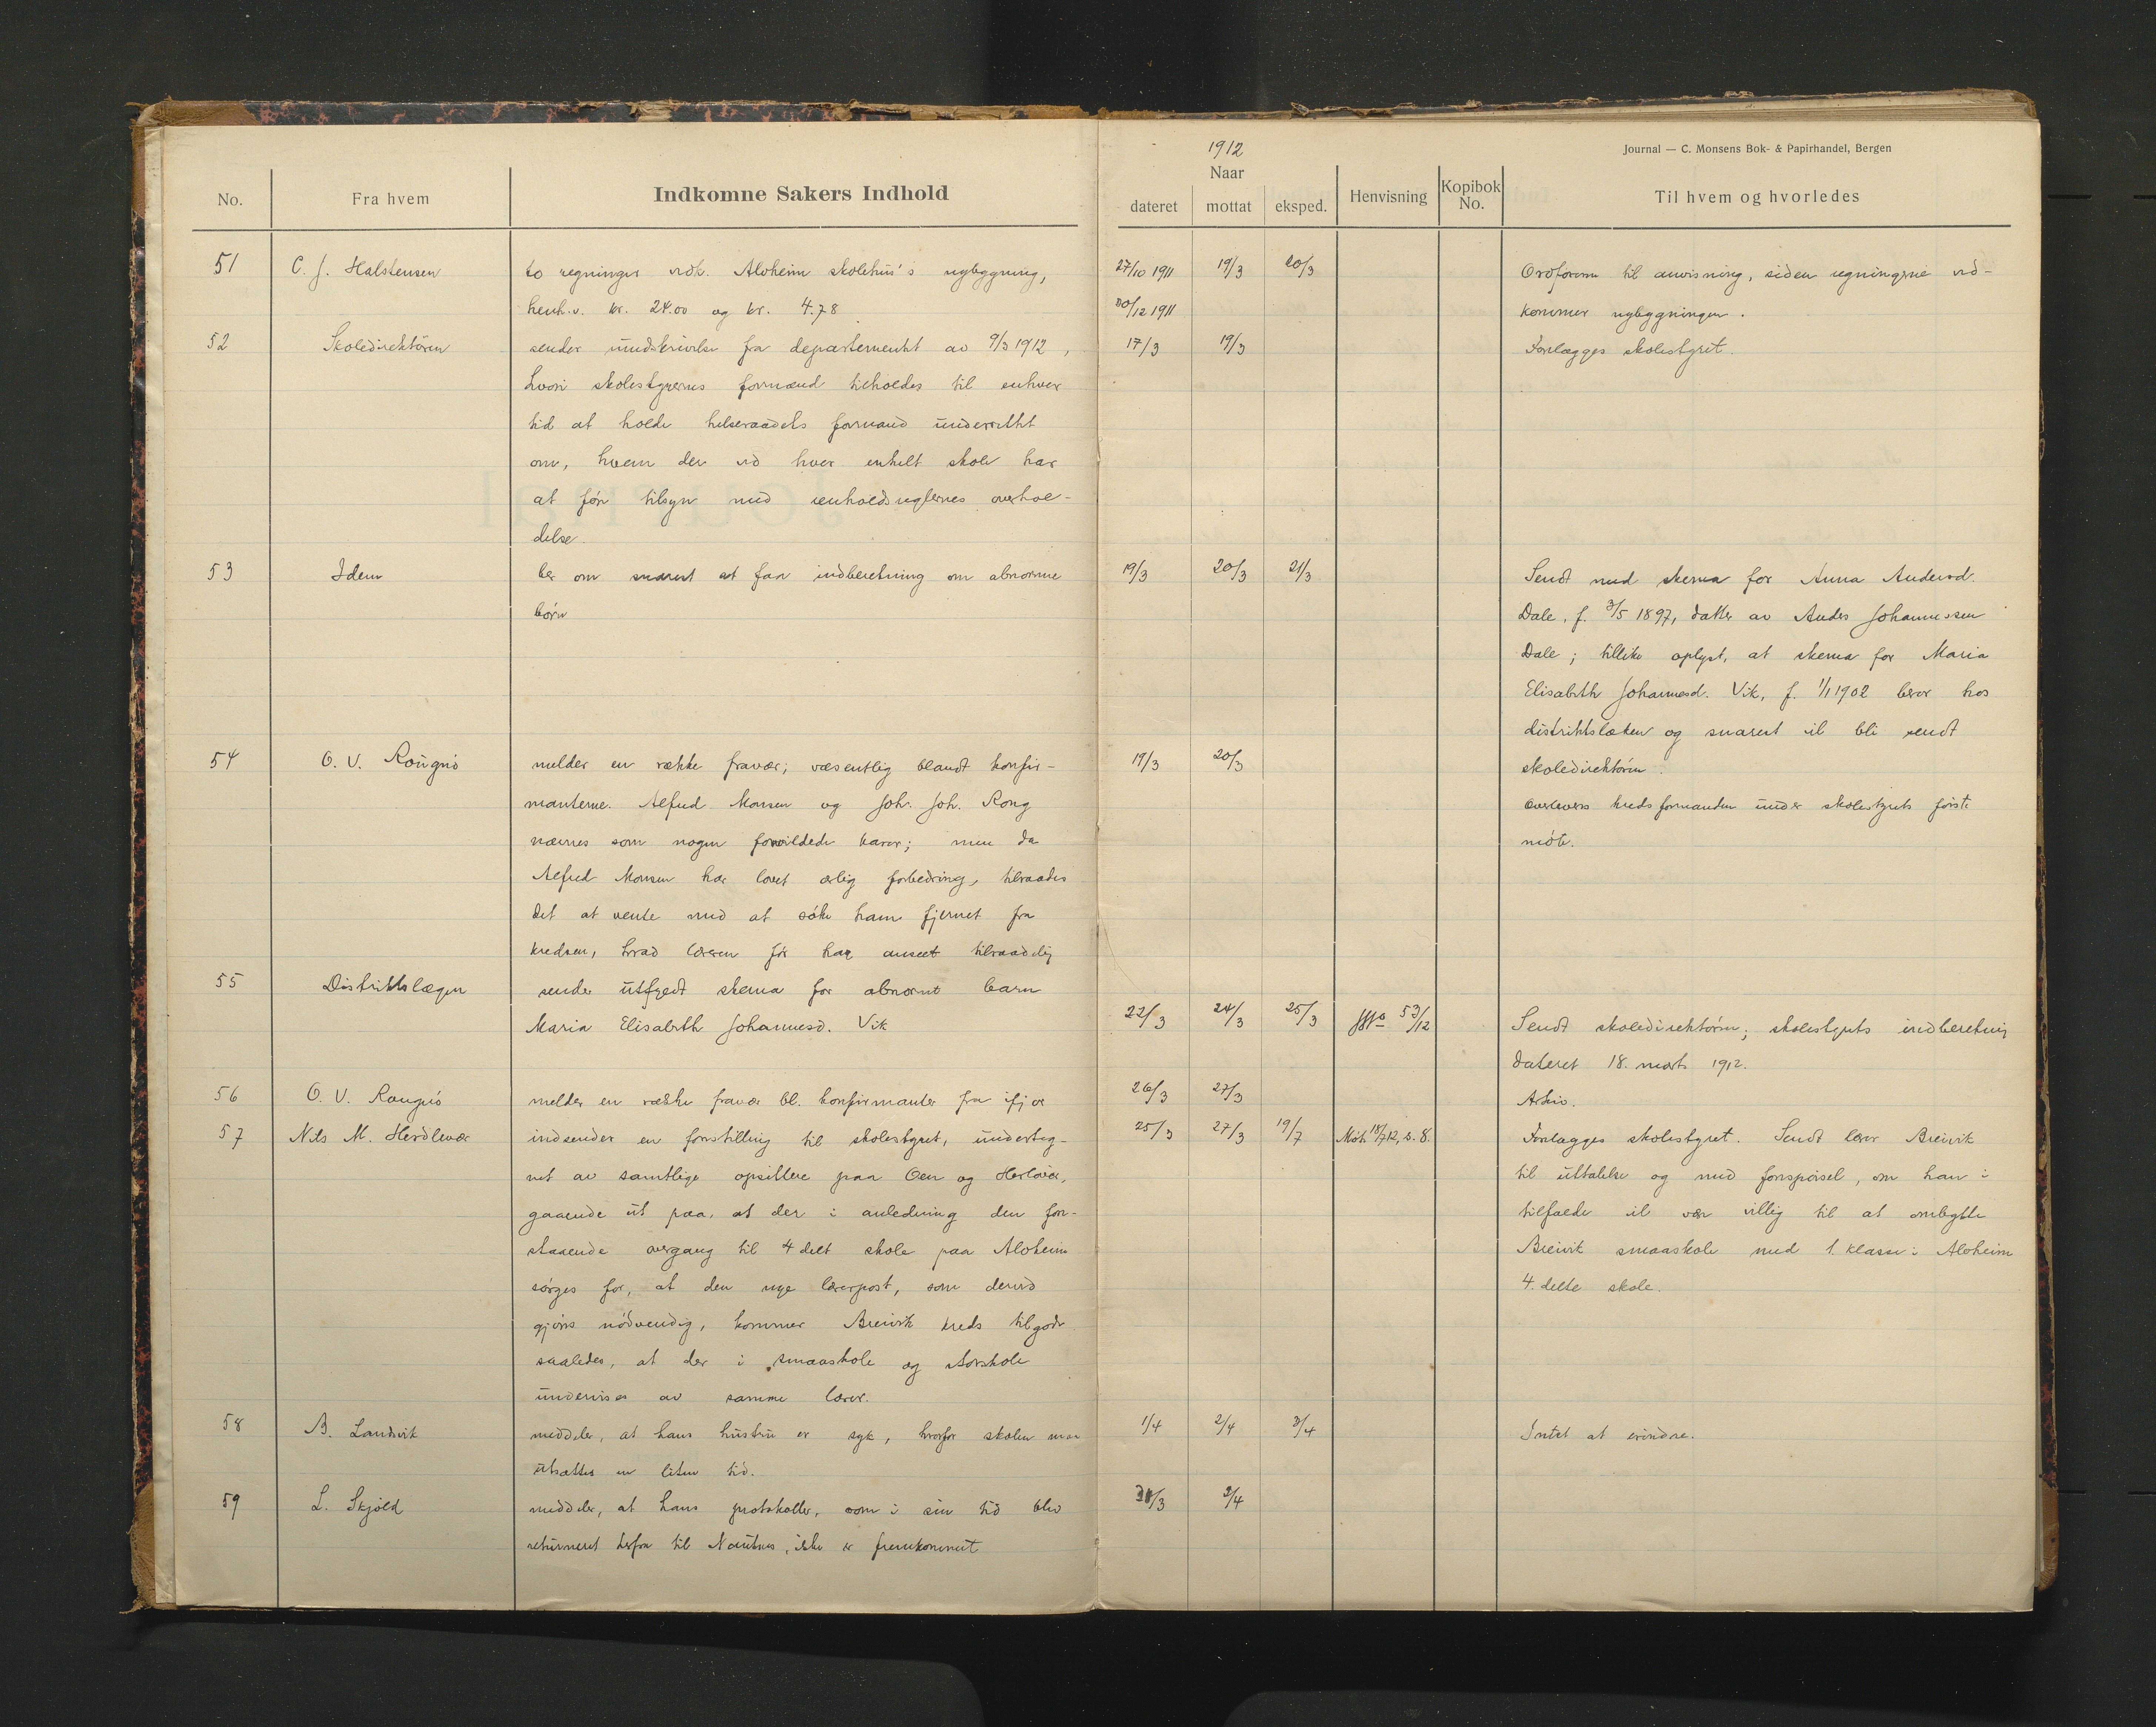 1912
Journal — C. Monsens Bok- & Papirhandel, Bergen
No. Fra hvem Indkomne Sakers Indhold Naar dateret mottat eksped. Henvisning Kopibok No. Til hvem og hvorledes
51 C. J. Halstensen to regninger vedk. Alvheim skolehus's nybygning, 27/10 1911 19/3 20/3 Ordføreren til anvisning, siden regningene ved-
henh.v. kr. 24.00 og kr. 4.78 30/12 1911 kommer nybygningen.
52 Skoledirektören sender rundskrivelse fra departementet av 9/3 1912, 17/3 19/3 Forelægges skolestyret.
hvori skolestyrernes formænd tilholdes til enhver
tid at holde helseraadets formand underrettet
om, hvem der ved hver enkelt skole har
at føre tilsyn med renholdsreglernes overhol-
delse.
53 Idem ber om snarest at faa indberetning om abnorme 19/3 20/3 21/3 Sendt med skema for Anna Andersd.
børn Dale, f. 3/5 1897, datter av Anders Johannessen
Dale; tillike oplyst, at skema for Maria
Elisabeth Johannesd. Vik, f. 1/1 1902 beror hos
distriktslæken og snarest vil bli sendt
skoledirektören.
54 O. V. Rongnö melder en række fravær; væsentlig blandt konfir- 19/3 20/3
manterne. Alfred Monsen og Joh. Joh. Rong Overleveres kredsformanden under skolestyrets første
nævnes som nogen forvildede karer; men da møte.
Alfred Monsen har lovet ærlig forbedring, tilraades
det at vente med at søke ham fjernet fra
kredsen, hvad læreren før har anseet tilraadelig
55 Distriktslægen sender utfyldt skema for abnormt barn
Maria Elisabeth Johannesd. Vik 22/3 24/3 25/3 53/12 Sendt skoledirektören; skolestyrets indberetning
dateret 18. marts 1912.
56 O. V. Rongnö melder en række fravær bl. konfirmanter fra ifjor 26/3 27/3 Arkiv.
57 Nils M. Herdlevær indsender en forestilling til skolestyret, underteg- 25/3 27/3 19/7 Møte 18/7 12, s. 8. Forelægges skolestyret. Sendt lærer Breivik
net av samtlige opsittere paa Oen og Herlevær, til uttalelse og med forespørsel, om han i
gaaende ut paa, at der i anledning den fore- tilfælde vil være villig til at ombytte
staaende overgang til 4 delt skole paa Alvheim Breivik smaaskole med 1. klasse i Alvheim
sørges for, at den nye lærerpost, som derved 4. delte skole.
gjøres nødvendig, kommer Breivik kreds tilgode
saaledes, at der i smaaskole og storskole
undervises av samme lærer.
58 B. Landvik meddeler, at hans hustru er syk, hvorfor skolen maa 1/4 2/4 3/4 Intet at erindre.
utsættes en liten tid.
59 L. Skjold meddeler, at hans protokoller, som i sin tid blev 31/3 2/4
returneret herfra til Nautnes, ikke er fremkommet